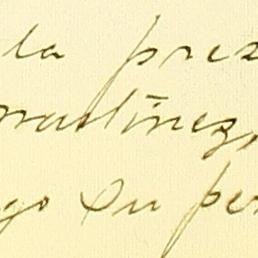 la pres
martinez,
go su per